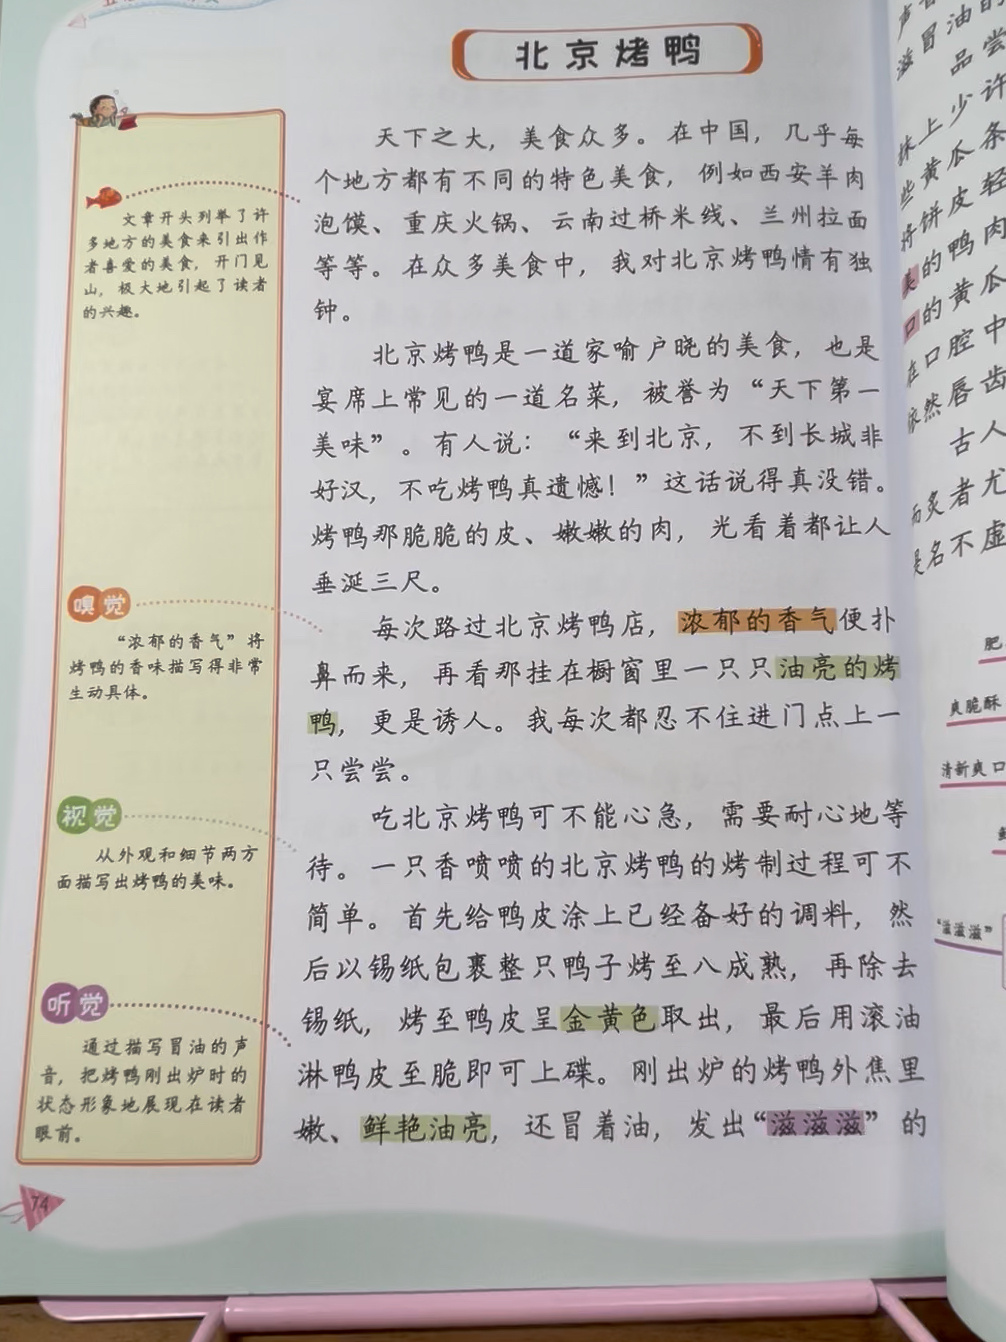 北京烤鸭
文章开头列举了许
多地方的美食来引出作
者喜爱的美食，开门见
山，极大地引起了读者
的兴趣。
嗅觉
“浓郁的香气”将
烤鸭的香味描写得非常
生动具体。
视觉
从外观和细节两方
面描写出烤鸭的美味。
听觉
通过描写冒油的声
音，把烤鸭刚出炉时的
状态形象地展现在读者
眼前。
74
天下之大，美食众多。在中国，几乎每
个地方都有不同的特色美食，例如西安羊肉
泡馍、重庆火锅、云南过桥米线、兰州拉面
等等。在众多美食中，我对北京烤鸭情有独
钟。
北京烤鸭是一道家喻户晓的美食，也是
宴席上常见的一道名菜，被誉为“天下第一
美味”。有人说：“来到北京，不到长城非
好汉，不吃烤鸭真遗憾！”这话说得真没错。
烤鸭那脆脆的皮、嫩嫩的肉，光看着都让人
垂涎三尺。
每次路过北京烤鸭店，浓郁的香气便扑
鼻而来，再看那挂在橱窗里一只只油亮的烤
鸭，更是诱人。我每次都忍不住进门点上一
只尝尝。
吃北京烤鸭可不能心急，需要耐心地等
待。一只香喷喷的北京烤鸭的烤制过程可不
简单。首先给鸭皮涂上已经备好的调料，然
后以锡纸包裹整只鸭子烤至八成熟，再除去
锡纸，烤至鸭皮呈金黄色取出，最后用滚油
淋鸭皮至脆即可上碟。刚出炉的烤鸭外焦里
嫩、鲜艳油亮，还冒着油，发出“滋滋滋”的
滋冒油的
品尝
抹上少许
些黄瓜条
将饼皮轻
美的鸭肉
口的黄瓜
在口腔中
依然唇齿
古人
而炙者尤
是名不虚
肥
爽脆酥
清新爽口
“滋滋滋”